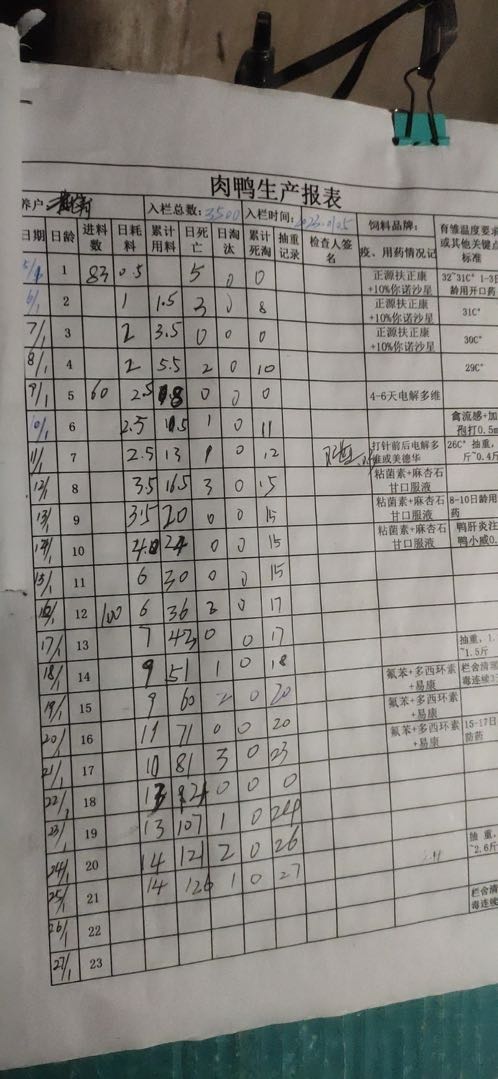 肉鸭生产报表
养户: 入栏总数: 3500 入栏时间: 2023.01.05 饲料品牌: 有雏温度要求
日期 日龄 进料数 日耗料 累计用料 日死亡 日淘汰 累计死淘 抽重记录 检查人签名 疫、用药情况记 或其他关键点标准
5/1 1 83 0.5 5 0 0 正源扶正康+10%你诺沙星 32~31C° 1-3日龄用开口药
6/1 2 1 1.5 3 0 8 正源扶正康+10%你诺沙星 31C°
7/1 3 2 3.5 0 0 0 正源扶正康+10%你诺沙星 30C°
8/1 4 2 5.5 2 0 10 29C°
9/1 5 60 2.5 8 0 0 0 4-6天电解多维
10/1 6 2.5 1 0 11 禽流感+加 孢打0.5m
11/1 7 2.5 13 1 0 12 打针前后电解多维或美德华 26C° 抽重, 斤~0.4斤
12/1 8 3.5 16.5 3 0 15 粘菌素+麻杏石甘口服液
13/1 9 3.5 20 0 0 15 粘菌素+麻杏石甘口服液 8-10日龄用药
14/1 10 4.0 24 0 0 15 粘菌素+麻杏石甘口服液 鸭肝炎注 鸭小威0.
15/1 11 6 30 0 0 15
16/1 12 100 6 36 2 0 17
17/1 13 7 43 0 0 17 抽重, 1. ~1.5斤
18/1 14 9 51 1 0 18 氟苯+多西环素+易康 栏舍清 毒连续3
19/1 15 9 60 2 0 20 氟苯+多西环素+易康
20/1 16 11 71 0 0 20 氟苯+多西环素+易康 15-17日 防药
21/1 17 10 81 3 0 23
22/1 18 13 94 0 0 0
23/1 19 13 107 1 0 24
24/1 20 14 121 2 0 26 抽重, ~2.6斤
25/1 21 14 126 1 0 27
26/1 22 栏舍清 毒连续
27/1 23